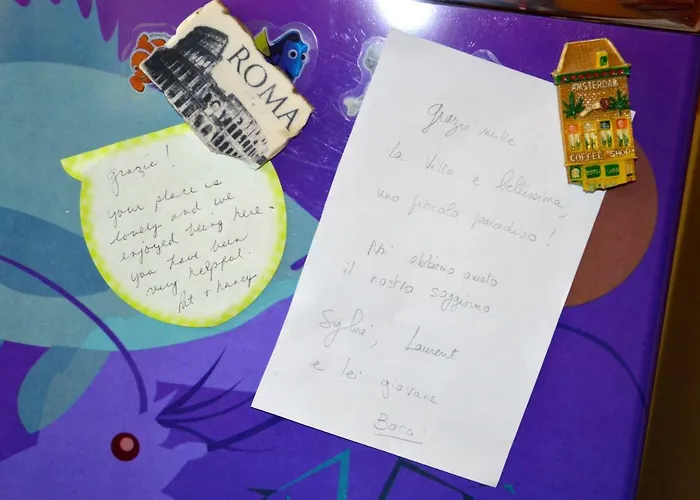 ROMA
grazie!
your place is
lovely and we
enjoyed being here -
you have been
very helpful.
Pat + Nancy
grazie mille
la Villa e bellissima,
uno piccolo paradiso!
Noi abbiamo amato
il nostro soggiorno.
Sylvie, Laurent
e lei giovane
Baci.
AMSTERDAM
COFFEE SHOP